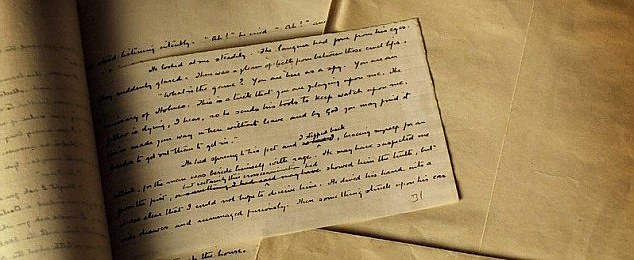 stood listening intently. "Ah!" he cried "Ah!" and
He looked at me steadily. The languor had gone from his eyes.
They suddenly glared. There was a gleam of teeth from between those cruel lips.
"What is the game? You are here as a spy. You are an
emissary of Holmes. This is a trick that you are playing upon me. The
fellow is dying, I hear, so he sends his tools to keep watch upon me.
You've made your way in here without leave and by God you may find it
harder to get out than to get in."
He had sprung to his feet and I stepped back, bracing myself for an
attack, for the man was beside himself with rage. He may have suspected me
from the first, but certainly this cross examination had showed him the truth, but
it was clear that I could not hope to deceive him. He dived his hand into a
side drawer and rummaged furiously. Then something struck upon his ear
31
the house.